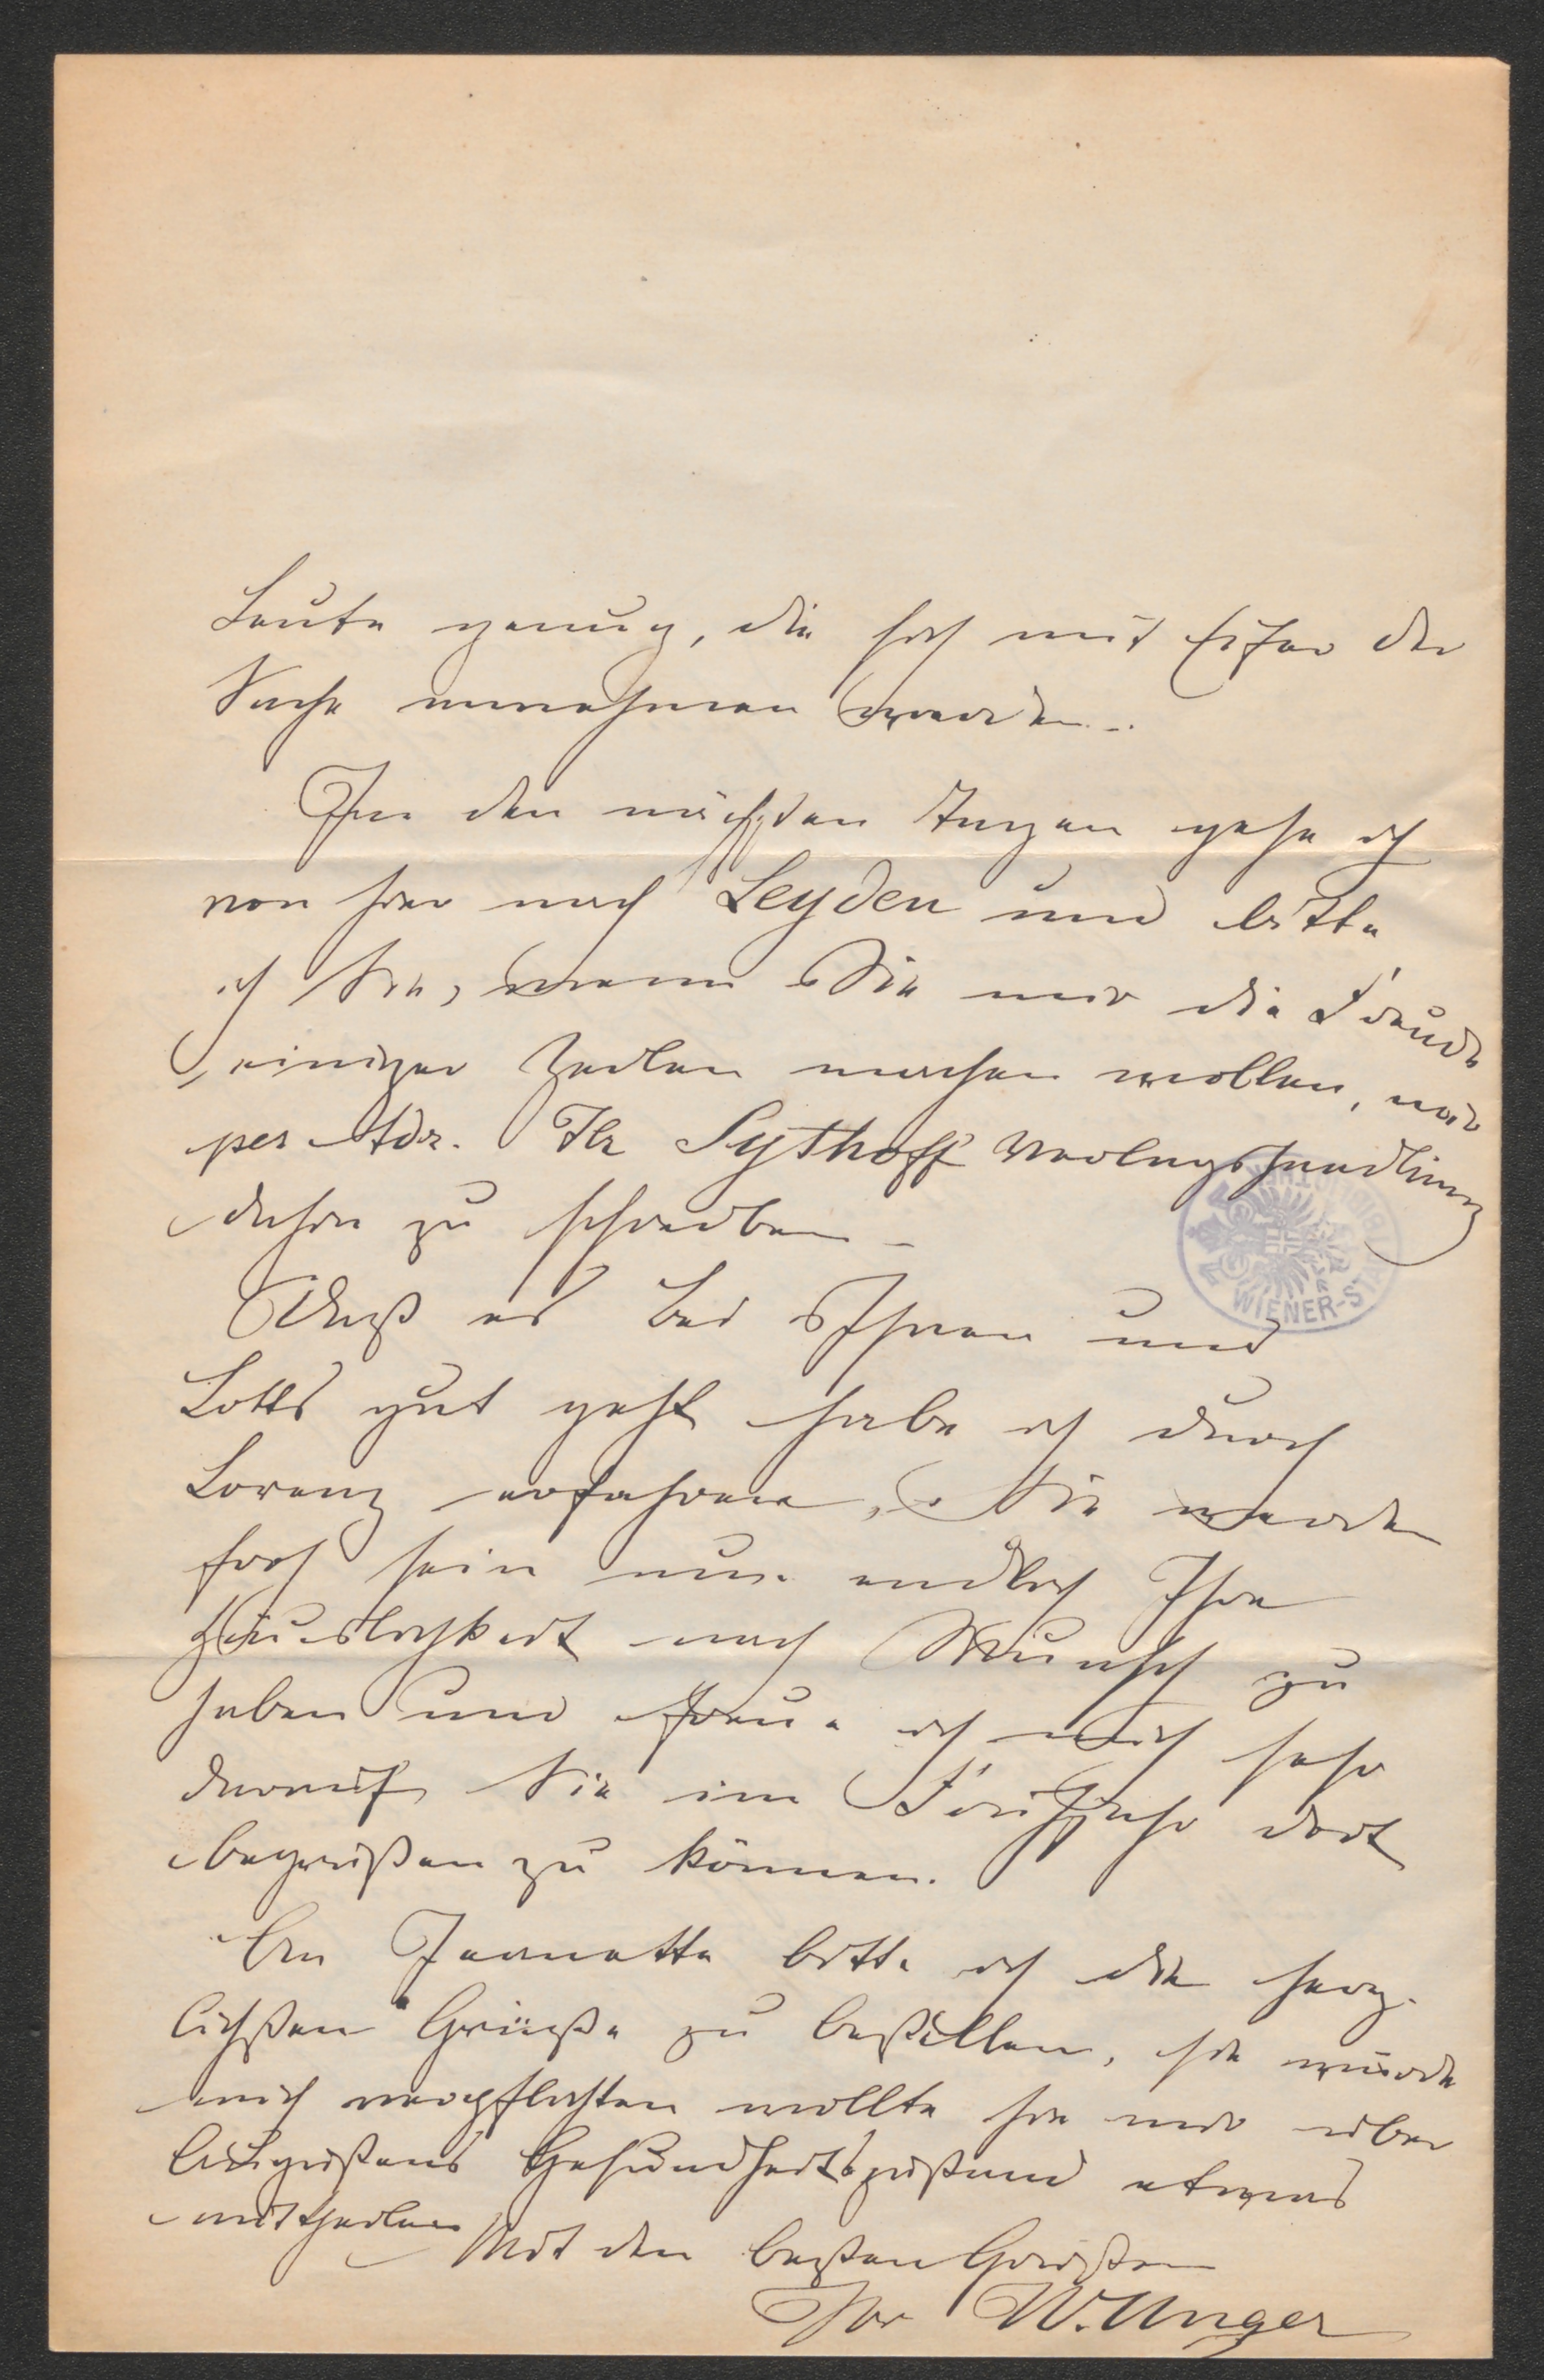 Leute genug, die sich mit Eifer der
Sache annehmen werden.
In den nächsten Tagen gehe ich
von hier nach Leyden und bitte
ich Sie, wenn Sie mir die Freude
einiger Zeilen machen wollen, mir
per Adr. Hr Sythoff Verlagshandlung
dahin zu schreiben –
Daß es bei Ihnen und
Lotts gut geht habe ich durch
Lorenz erfahren, Sie werden
froh sein nun endlich Ihre
Häuslichkeit nach Wunsch zu
haben und freue ich mich sehr
darauf Sie im Frühjahr dort
begrüßen zu können.
An Jeannette bitte ich die herz-
lichsten Grüße zu bestellen, sie würde
mich verpflichten wollte sie mir über
Gesundheitszustand etwas
mittheilen
Mit den besten Grüßen
Ihr W. Unger
WIENER-STA
BIBLIOTHEK